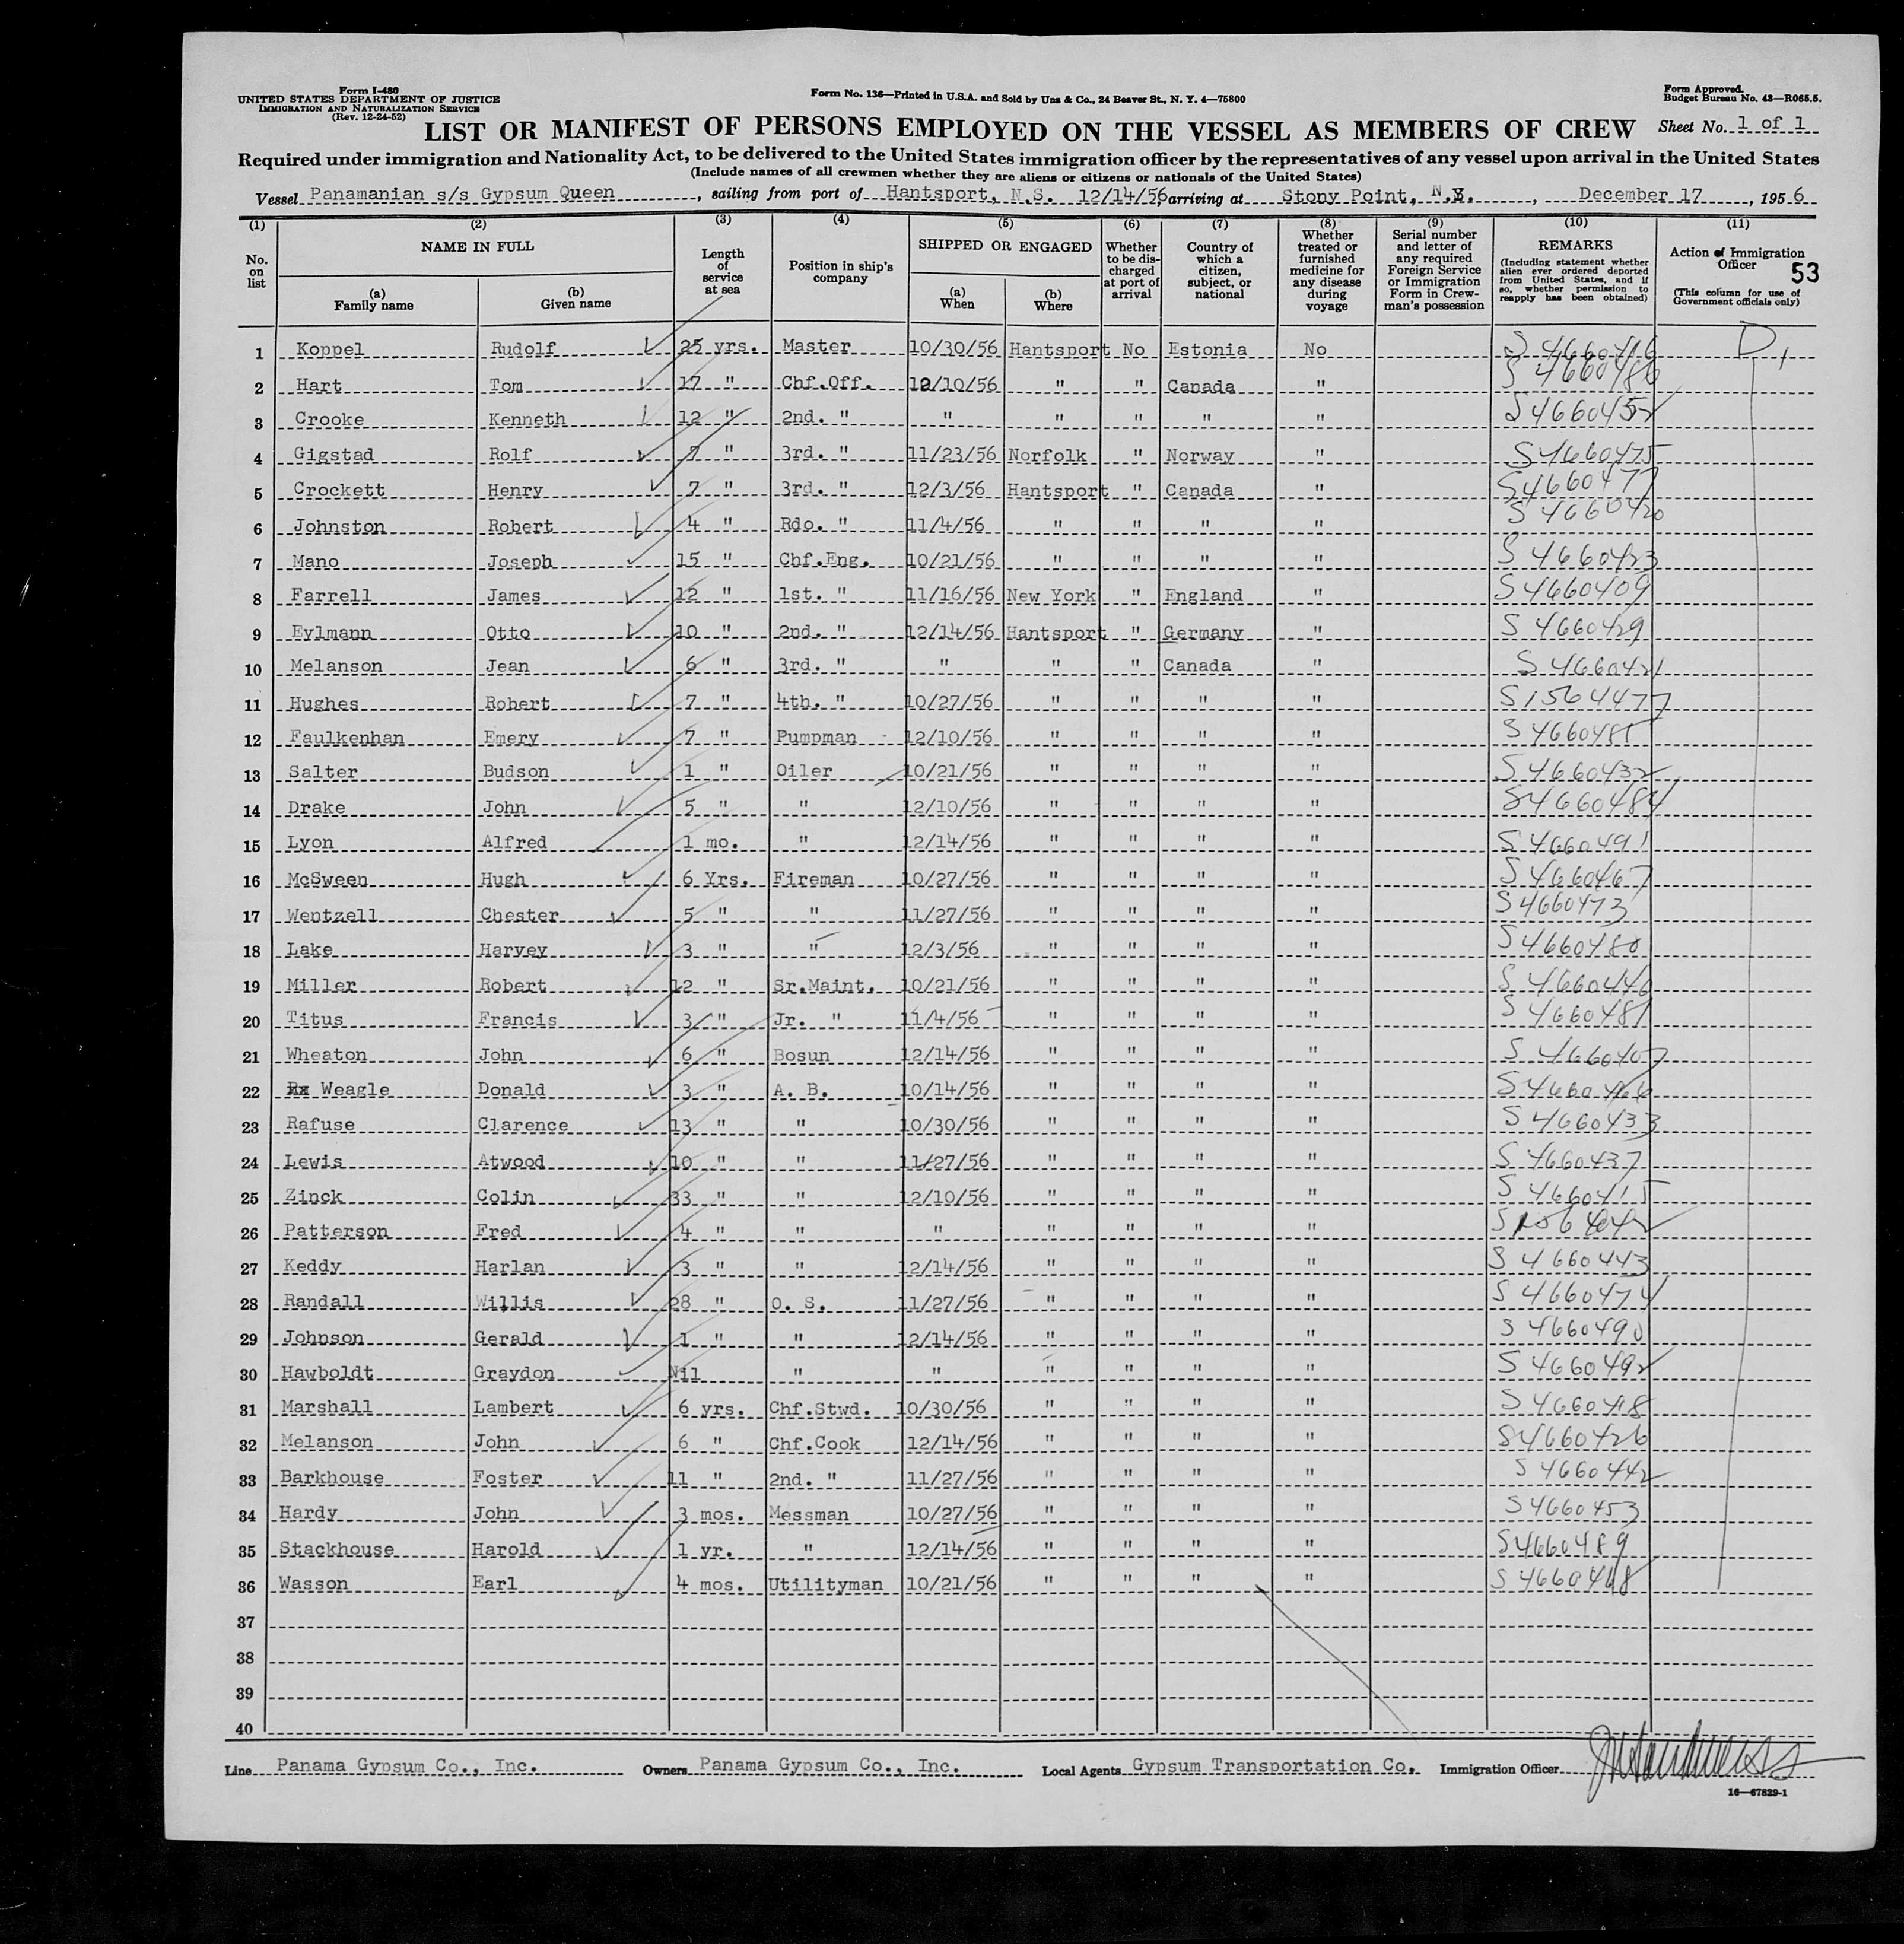 Form I-480
UNITED STATES DEPARTMENT OF JUSTICE
IMMIGRATION AND NATURALIZATION SERVICE
(Rev. 12-24-52)
Form No. 136—Printed in U.S.A. and Sold by Unz & Co., 24 Beaver St., N. Y. 4—75800
Form Approved.
Budget Bureau No. 43—R065.5.
LIST OR MANIFEST OF PERSONS EMPLOYED ON THE VESSEL AS MEMBERS OF CREW Sheet No. 1 of 1
Required under immigration and Nationality Act, to be delivered to the United States immigration officer by the representatives of any vessel upon arrival in the United States
(Include names of all crewmen whether they are aliens or citizens or nationals of the United States)
Vessel Panamanian s/s Gypsum Queen, sailing from port of Hantsport, N.S. 12/14/56, arriving at Stony Point, N.Y., December 17, 1956
(1) (2) (3) (4) (5) (6) (7) (8) (9) (10) (11)
No. on list
NAME IN FULL
(a) Family name
(b) Given name
Length of service at sea
Position in ship's company
SHIPPED OR ENGAGED
(a) When
(b) Where
Whether to be discharged at port of arrival
Country of which a citizen, subject, or national
Whether treated or furnished medicine for any disease during voyage
Serial number and letter of any required Foreign Service or Immigration Form in Crewman's possession
REMARKS
(Including statement whether alien ever ordered deported from United States, and if so, whether permission to reapply has been obtained)
Action of Immigration Officer 53
(This column for use of Government officials only)
1 Koppel Rudolf 25 yrs. Master 10/30/56 Hantsport No Estonia No S 4660416
2 Hart Tom 17 " Chf.Off. 12/10/56 " " Canada " S 4660486
3 Crooke Kenneth 12 " 2nd. " " " " " " S 4660452
4 Gigstad Rolf 7 " 3rd. " 11/23/56 Norfolk " Norway " S 4660475
5 Crockett Henry 7 " 3rd. " 12/3/56 Hantsport " Canada " S 4660477
6 Johnston Robert 4 " Rdo. " 11/4/56 " " " " S 4660420
7 Mano Joseph 15 " Chf.Eng. 10/21/56 " " " " S 4660423
8 Farrell James 12 " 1st. " 11/16/56 New York " England " S 4660409
9 Eylmann Otto 10 " 2nd. " 12/14/56 Hantsport " Germany " S 4660429
10 Melanson Jean 6 " 3rd. " " " " Canada " S 4660421
11 Hughes Robert 7 " 4th. " 10/27/56 " " " " S 1564477
12 Faulkenhan Emery 7 " Pumpman 12/10/56 " " " " S 4660485
13 Salter Budson 1 " Oiler 10/21/56 " " " " S 4660432
14 Drake John 5 " " 12/10/56 " " " " S 4660484
15 Lyon Alfred 1 mo. " 12/14/56 " " " " S 4660491
16 McSween Hugh 6 Yrs. Fireman 10/27/56 " " " " S 4660467
17 Wentzell Chester 5 " " 11/27/56 " " " " S 4660473
18 Lake Harvey 3 " " 12/3/56 " " " " S 4660480
19 Miller Robert 12 " Sr.Maint. 10/21/56 " " " " S 4660446
20 Titus Francis 3 " Jr. " 11/4/56 " " " " S 4660481
21 Wheaton John 6 " Bosun 12/14/56 " " " " S 4660407
22 Weagle Donald 3 " A. B. 10/14/56 " " " " S 4660466
23 Rafuse Clarence 13 " " 10/30/56 " " " " S 4660433
24 Lewis Atwood 10 " " 11/27/56 " " " " S 4660437
25 Zinck Colin 33 " " 12/10/56 " " " " S 4660415
26 Patterson Fred 4 " " " " " " "
27 Keddy Harlan 3 " " 12/14/56 " " " " S 4660443
28 Randall Willis 28 " O. S. 11/27/56 " " " " S 4660474
29 Johnson Gerald 1 " " 12/14/56 " " " " S 4660490
30 Hawboldt Graydon Nil " " " " " " S 4660492
31 Marshall Lambert 6 yrs. Chf.Stwd. 10/30/56 " " " " S 4660418
32 Melanson John 6 " Chf.Cook 12/14/56 " " " " S 4660426
33 Barkhouse Foster 11 " 2nd. " 11/27/56 " " " " S 4660442
34 Hardy John 3 mos. Messman 10/27/56 " " " " S 4660453
35 Stackhouse Harold 1 yr. " 12/14/56 " " " " S 4660489
36 Wasson Earl 4 mos. Utilityman 10/21/56 " " " " S 4660468
37
38
39
40
Line Panama Gypsum Co., Inc. Owners Panama Gypsum Co., Inc. Local Agents Gypsum Transportation Co. Immigration Officer
16—67829-1